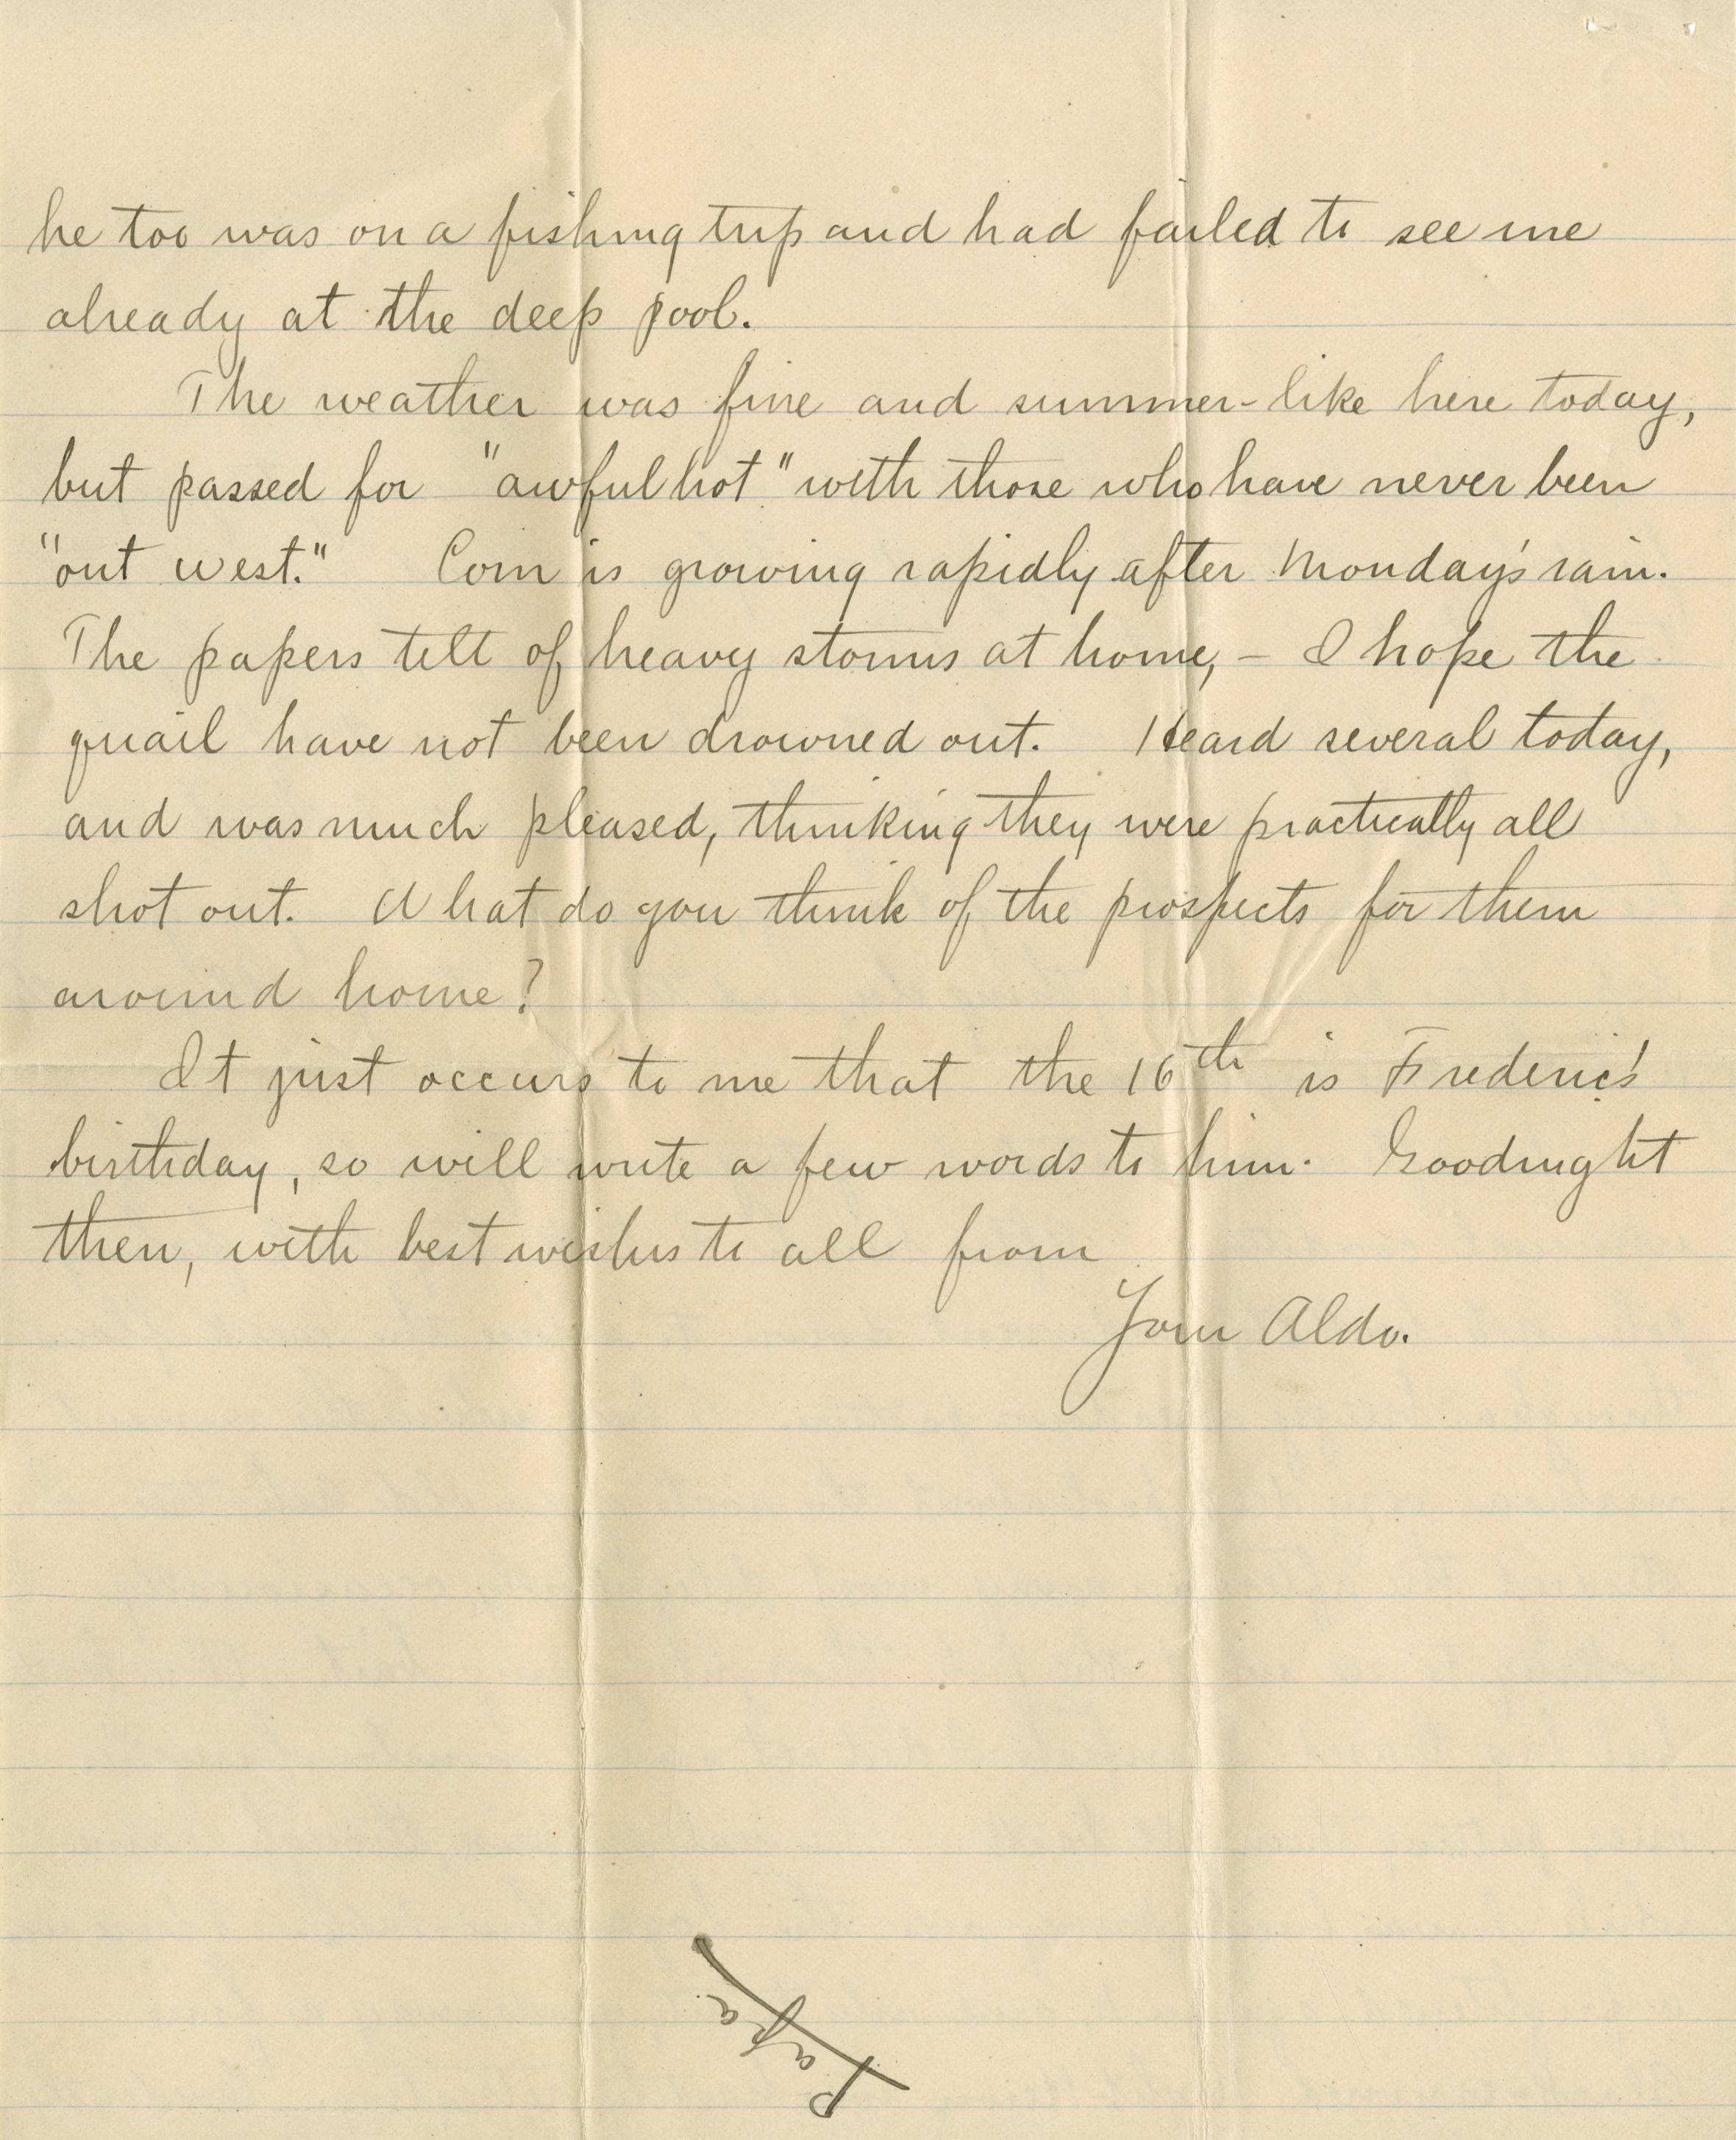 he too was on a fishing trip and had failed to see me
already at the deep pool.
The weather was fine and summer-like here today,
but passed for "awful hot" with those who have never been
"out west." Corn is growing rapidly after Monday's rain.
The papers tell of heavy storms at home, – I hope the
quail have not been drowned out. Heard several today,
and was much pleased, thinking they were practically all
shot out. What do you think of the prospects for them
around home?
It just occurs to me that the 16th is Frederic's
birthday, so will write a few words to him. Goodnight
then, with best wishes to all from
Your Aldo.
Papa